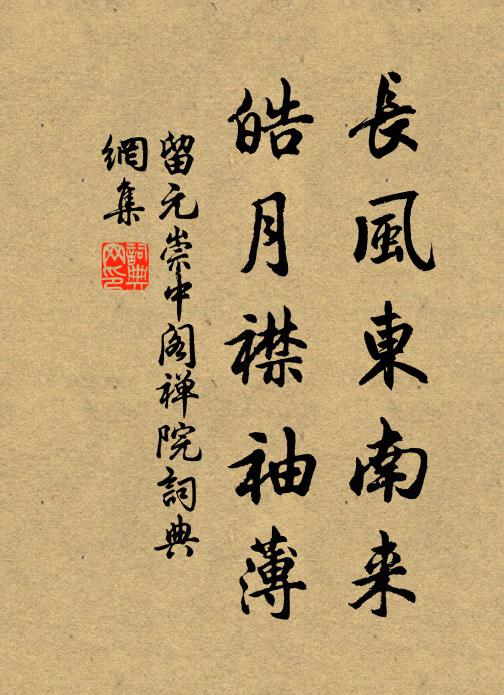 長風東南来
皓月襟袖薄
留元崇中阁禅院詞典
網集
詞典网印